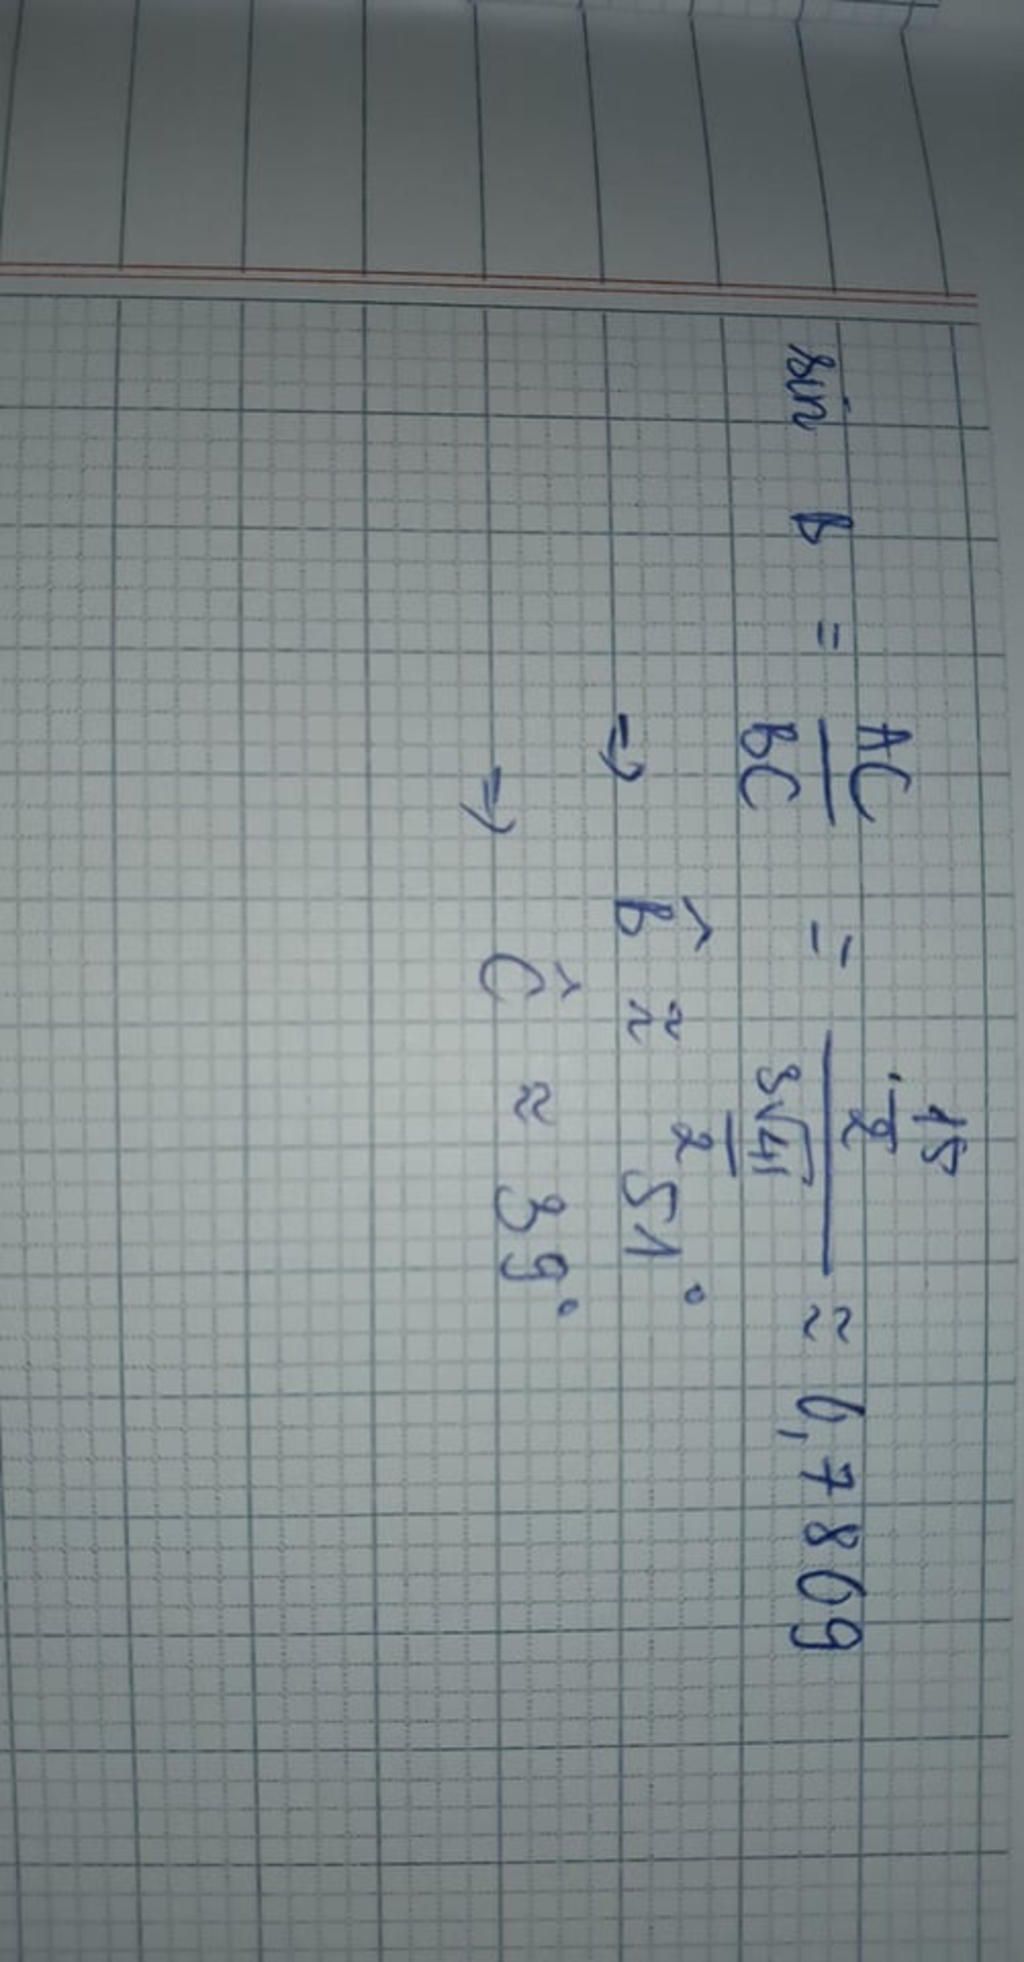 sin B = AC/BC = (15/2)/(3√41/2) ≈ 0,7809
⇒ B̂ ≈ 51°
⇒ Ĉ ≈ 39°